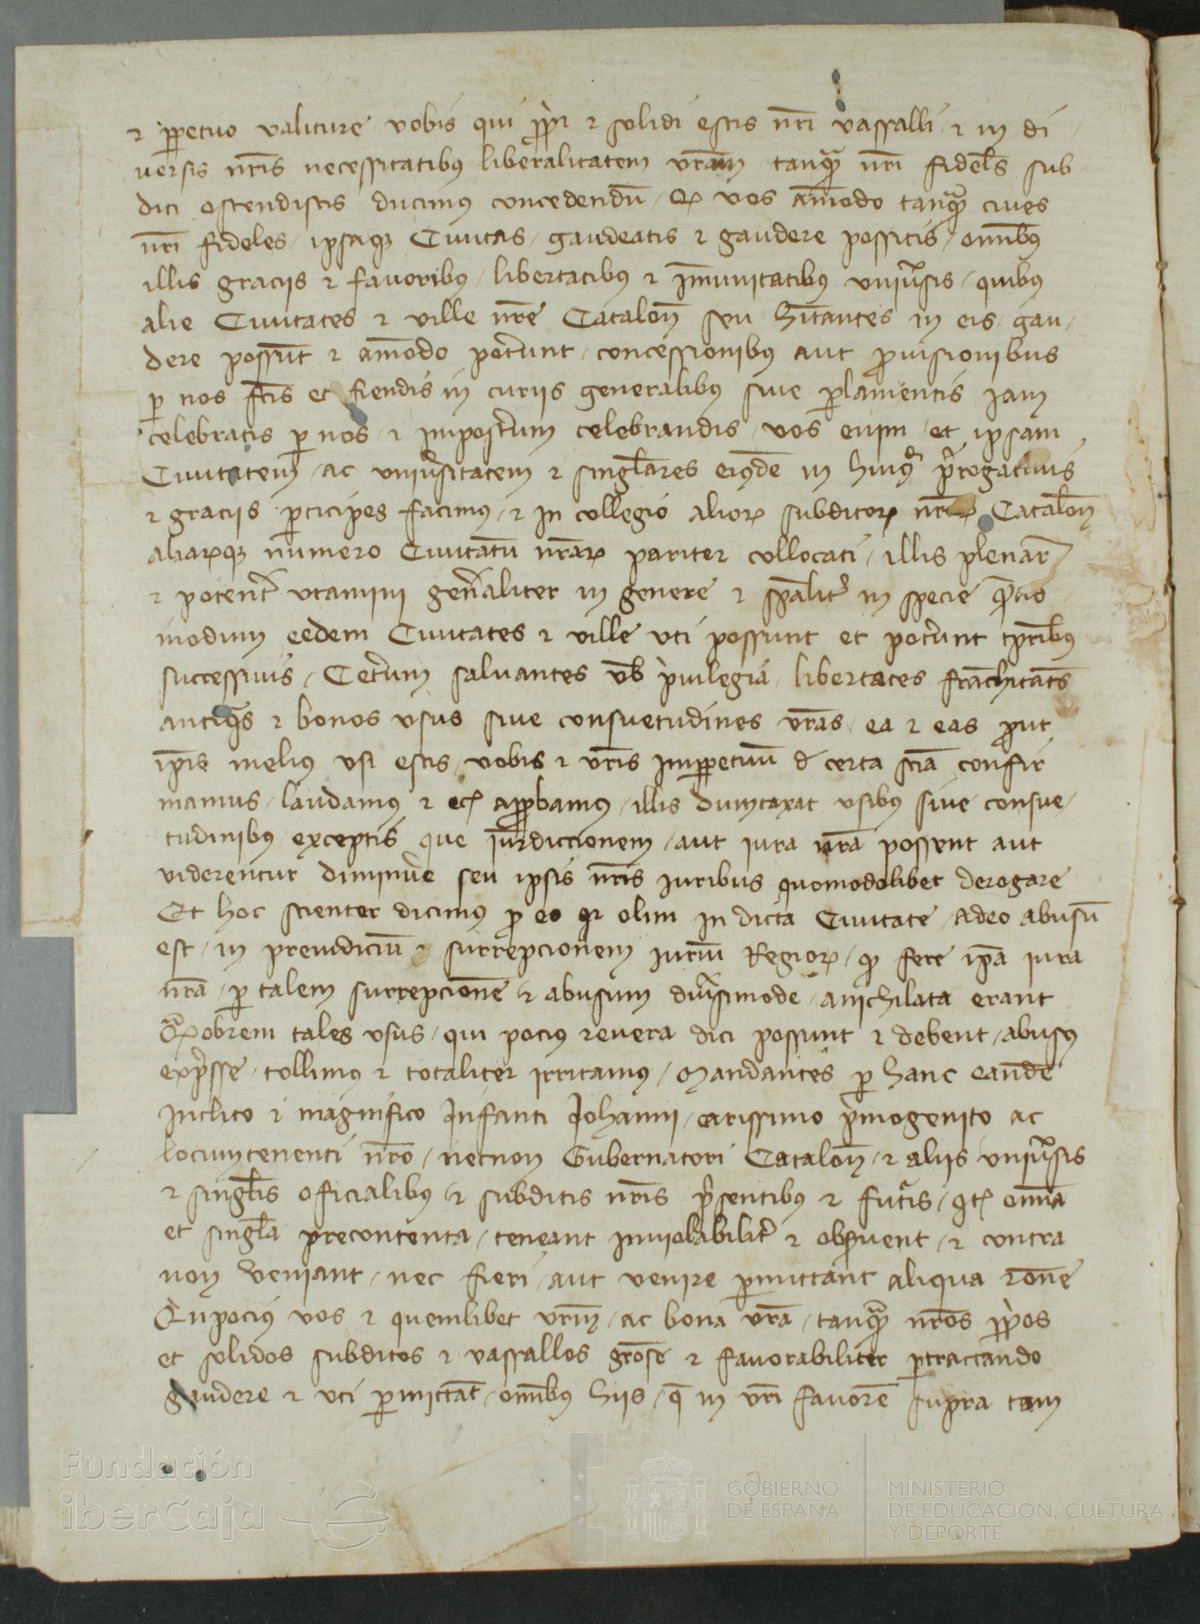 ⁊ ꝑpetuo valiture vobis qui ꝓp̃i ⁊ solidi estis nr̃i vassalli ⁊ in di
uersis nr̃is necessitatibus liberalitatem vr̃am tanquã nr̃i fideles sub
diti ostendistis ducimus concedendũ Qꝫ vos am̃odo tanquã ciues
nr̃i fideles ipsaqꝫ Ciuitas gaudeatis ⁊ gaudere possitis om̃ibus
illis graciis ⁊ fauoribus libertatibus ⁊ ĩmunitatibus vniuersis quibus
alie Ciuitates ⁊ ville nr̃e Cataloñ seu h̃itantes in eis gau
dere possũt ⁊ am̃odo pot̃unt concessionibus aut prouisionibus
ꝑ nos fc̃is et fiendis in curiis generalibus siue ꝑlamentis Jam
celebratis ꝑ nos ⁊ impost̃um celebrandis vos enim et ipsam
Ciuitatem ac vniũsitatem ⁊ singl̃ares eiusdẽ in huiusmõi p̃rogatiuis
⁊ graciis ꝑticipes facimus ⁊ in collegio alioꝝ subditoꝝ nr̃oꝝ Cataloñ
aliarꝝqꝫ numero Ciuitatũ nr̃aꝝ pariter collocati illis plenar̃
⁊ potent̃ vtamini gen̄aliter in genere ⁊ sp̃alit̃ in specie
modum eedem Ciuitates ⁊ ville vti possunt et pot̃unt tp̃ribus
successiuis Cet̃um saluantes vob̃ p̃uilegia libertates franchitates
antiquas ⁊ bonos vsus siue consuetudines vr̃as ea ⁊ eas prout
ip̃is melius vsi estis vobis ⁊ vr̃is imꝑpetuũ de certa scia confir
mamus laudamus ⁊ ecꝫ approbamus illis dumtaxat vsibus siue consue
tudinibus exceptis que iurẽdiccionem aut iura nr̃a possent aut
viderentur diminuẽ seu ipsis nr̃is iuribus quomodolibet derogare
Et hoc scienter dicimus ꝓ eo qꝛ olim in dicta Ciuitate adeo abusũ
est in preiudiciũ ⁊ surrepcionem iuriũ Regioꝝ qꝫ fere ip̃a iura
nr̃a ꝑ talem surrepcionẽ ⁊ abusum diũsimode anichilata erant
Quãobrem tales vsus qui pocius reuera dici possunt ⁊ debent abusus
exp̃sse tollimus ⁊ totaliter irritamus Mandantes ꝑ hanc eandẽ
Inclito ⁊ magnifico Infanti Johanni carissimo p̃mogenito ac
locumtenenti nr̃o necnon Gubernatori Cataloñ ⁊ aliis vniũsis
⁊ singl̃is officialibus ⁊ subditis nr̃is p̃sentibus ⁊ fut̃is qtꝫ om̃ia
et singl̃a precontenta teneant inuiolabilit̃ ⁊ obseruent ⁊ contra
non veniant nec fieri aut venire ꝑmittant aliqua r̃one
Qñpocius vos ⁊ quemlibet vr̃um ac bona vr̃a tanquã nr̃os ꝓp̃os
et solidos subditos ⁊ vassallos gr̃ose ⁊ fauorabiliter ꝑtractando
gaudere ⁊ vti ꝑmittãt om̃ibus hiis q̃ in vr̃i fauorẽ supra tam
Fundación
iberCaja
GOBIERNO
DE ESPAÑA
MINISTERIO
DE EDUCACIÓN, CULTURA
Y DEPORTE